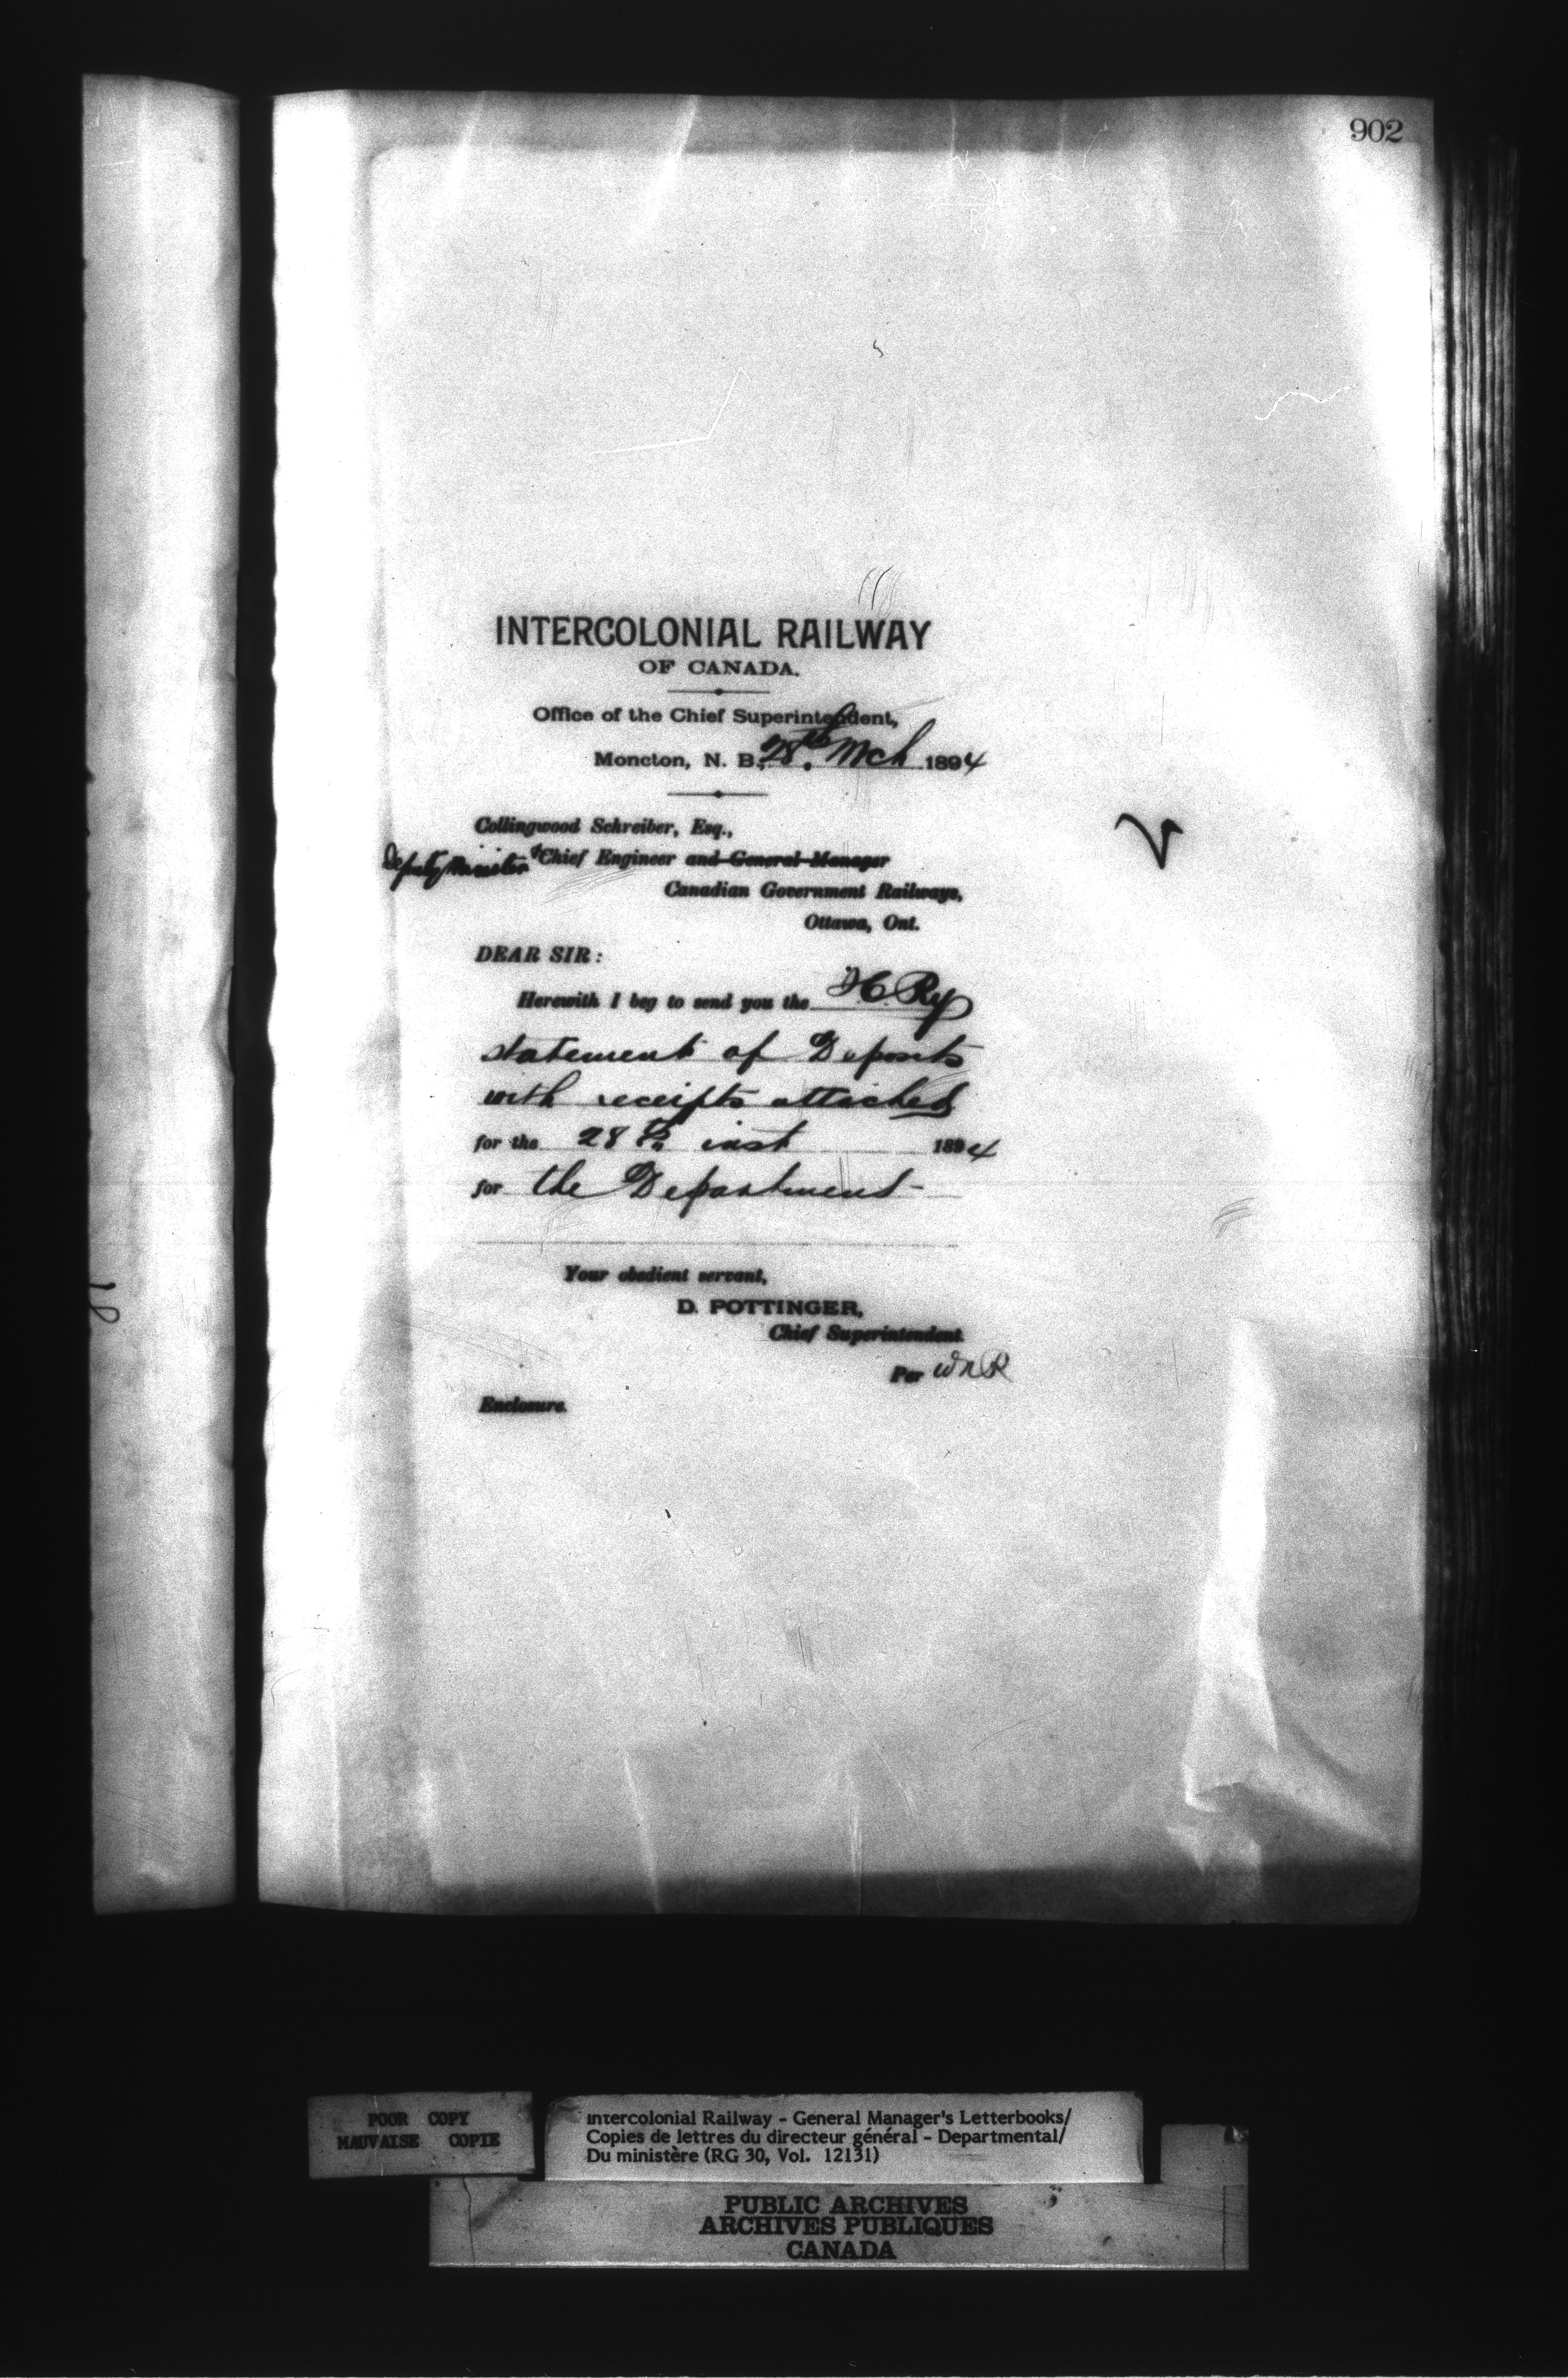 902
INTERCOLONIAL RAILWAY
OF CANADA.
Office of the Chief Superintendent,
Moncton, N. B., 28th Mch 1894
Collingwood Schreiber, Esq.,
Deputy Minister & Chief Engineer and General Manager
Canadian Government Railways,
Ottawa, Ont.
DEAR SIR:
Herewith I beg to send you the Ry
statement of Deposits
with receipts attached
for the 28th inst 1894
for the Department
Your obedient servant,
D. POTTINGER,
Chief Superintendent.
Per WNR
Enclosure.
POOR COPY
MAUVAISE COPIE
Intercolonial Railway - General Manager's Letterbooks/
Copies de lettres du directeur général - Departmental/
Du ministère (RG 30, Vol. 12131)
PUBLIC ARCHIVES
ARCHIVES PUBLIQUES
CANADA